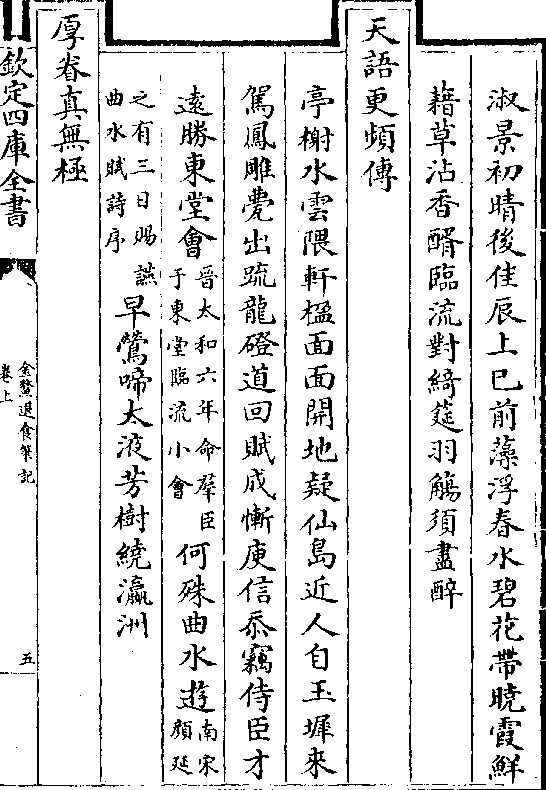 淑景初晴後佳辰上巳前藻浮春水碧花帶曉霞鮮
藉草沾香醑臨流對綺筵羽觴須盡醉
天語更頻傳
亭榭水雲隈軒楹面面開地疑仙島近人自玉墀來
駕鳳雕甍出疏龍磴道回賦成慚庾信忝竊侍臣才
遠勝東堂會
晉太和六年命羣臣
于東堂臨流小會
何殊曲水遊
南宋
顔延
之有三日賜讌
曲水賦詩序
早鶯啼太液芳樹繞瀛洲
厚眷真無極
欽定四庫全書
金鰲退食筆記
卷上
五